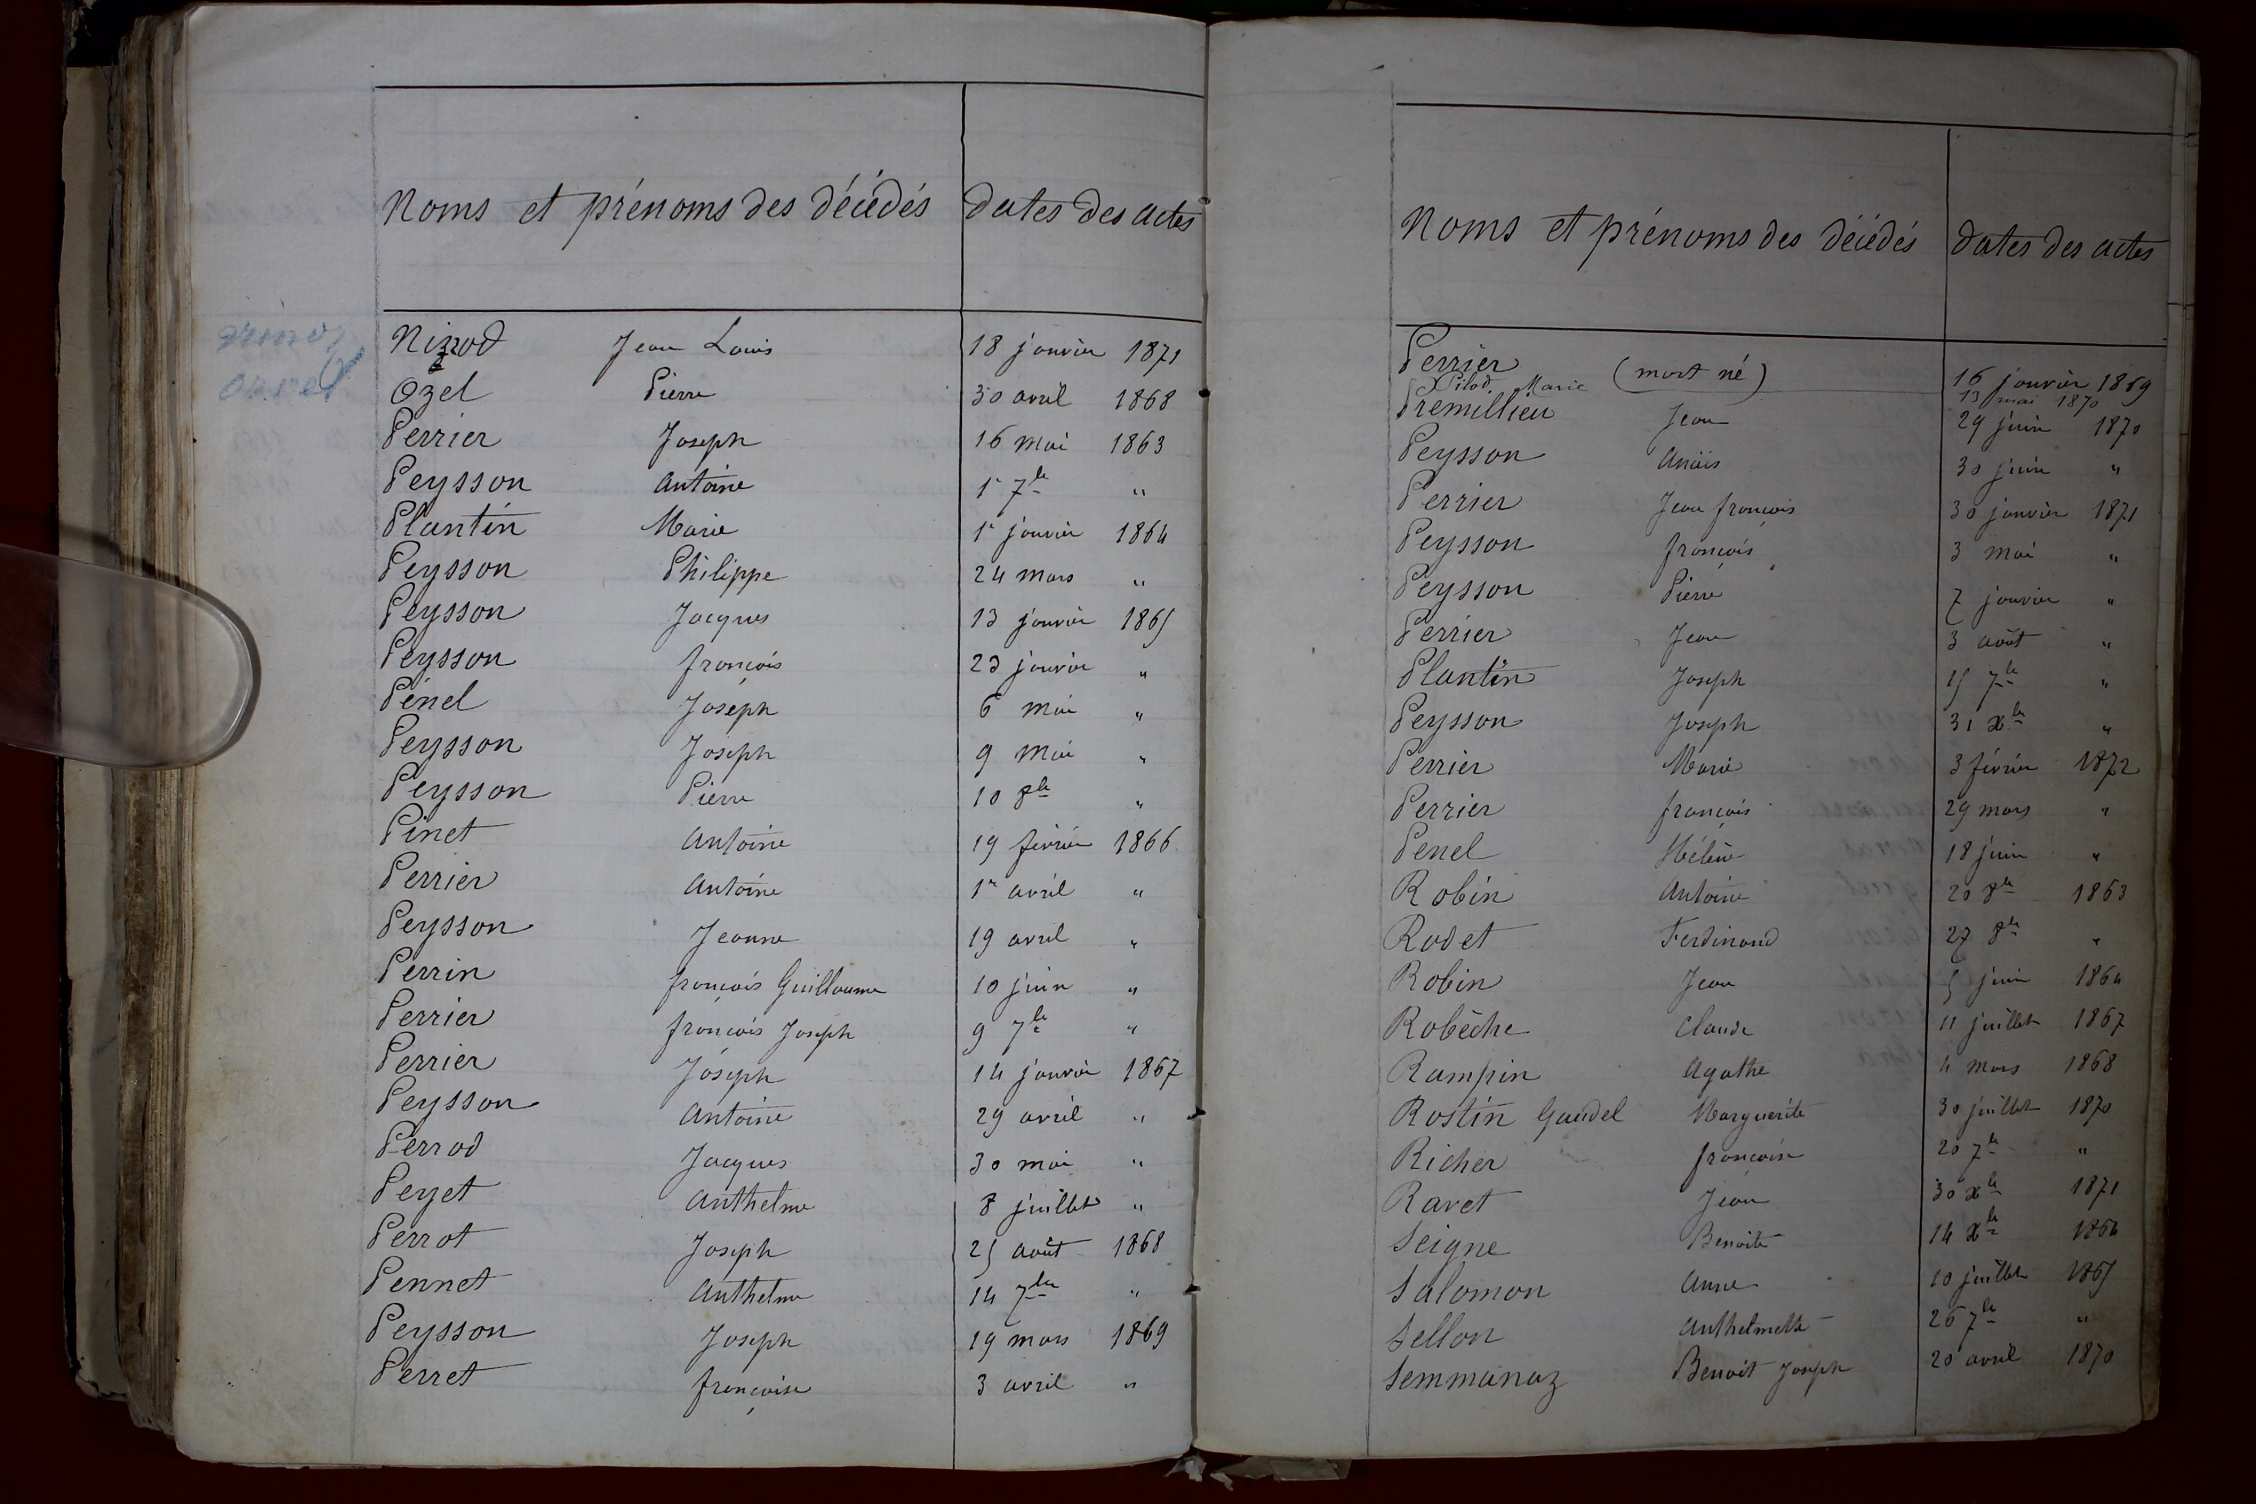 Noms et prénoms des décédés dates des actes
Nizod Jean Louis 18 janvier 1871
Ozel Pierre 30 avril 1868
Perrier Joseph 16 mai 1863
Peysson Antoine 1r 7bre "
Plantin Marie 1r janvier 1864
Peysson Philippe 24 mars "
Peysson Jacques 13 janvier 1865
Peysson françois 23 janvier "
Pénel Joseph 6 mai "
Peysson Joseph 9 mai "
Peysson Pierre 10 8bre "
Pinet Antoine 19 février 1866
Perrier Antoine 1r avril "
Peysson Jeanne 19 avril "
Perrin françois Guillaume 10 juin "
Perrier françois Joseph 9 7bre "
Perrier Joseph 14 janvier 1867
Peysson Antoine 29 avril "
Perrod Jacques 30 mai "
Peyet Anthelme 8 juillet "
Perrot Joseph 25 août 1868
Pennet Anthelme 14 7bre "
Peysson Joseph 19 mars 1869
Perret françoise 3 avril "
Noms et prénoms des décédés dates des actes
Perrier (mort né) 16 janvier 1869
Pilod Marie 13 mai 1870
Premillieu Jean 29 juin 1870
Peysson Anaïs 30 juin "
Perrier Jean françois 30 janvier 1871
Peysson françois 3 mai "
Peysson Pierre 7 janvier "
Perrier Jean 3 août "
Plantin Joseph 15 7bre "
Peysson Joseph 31 Xbre "
Perrier Marie 3 février 1872
Perrier françois 29 mars "
Penel Hélène 18 juin "
Robin Antoine 20 8bre 1863
Rodet Ferdinand 27 8bre "
Robin Jean 5 juin 1864
Robèche Claude 11 juillet 1867
Rampin Agathe 4 mars 1868
Rostin Gaudel Marguerite 30 juillet 1870
Richer françoise 20 7bre "
Ravet Jean 30 Xbre 1871
Seigne Benoite 14 Xbre 1864
Salomon Anne 10 juillet 1865
Sellon Anthelmette 26 7bre "
Semmanaz Benoit Joseph 20 avril 1870